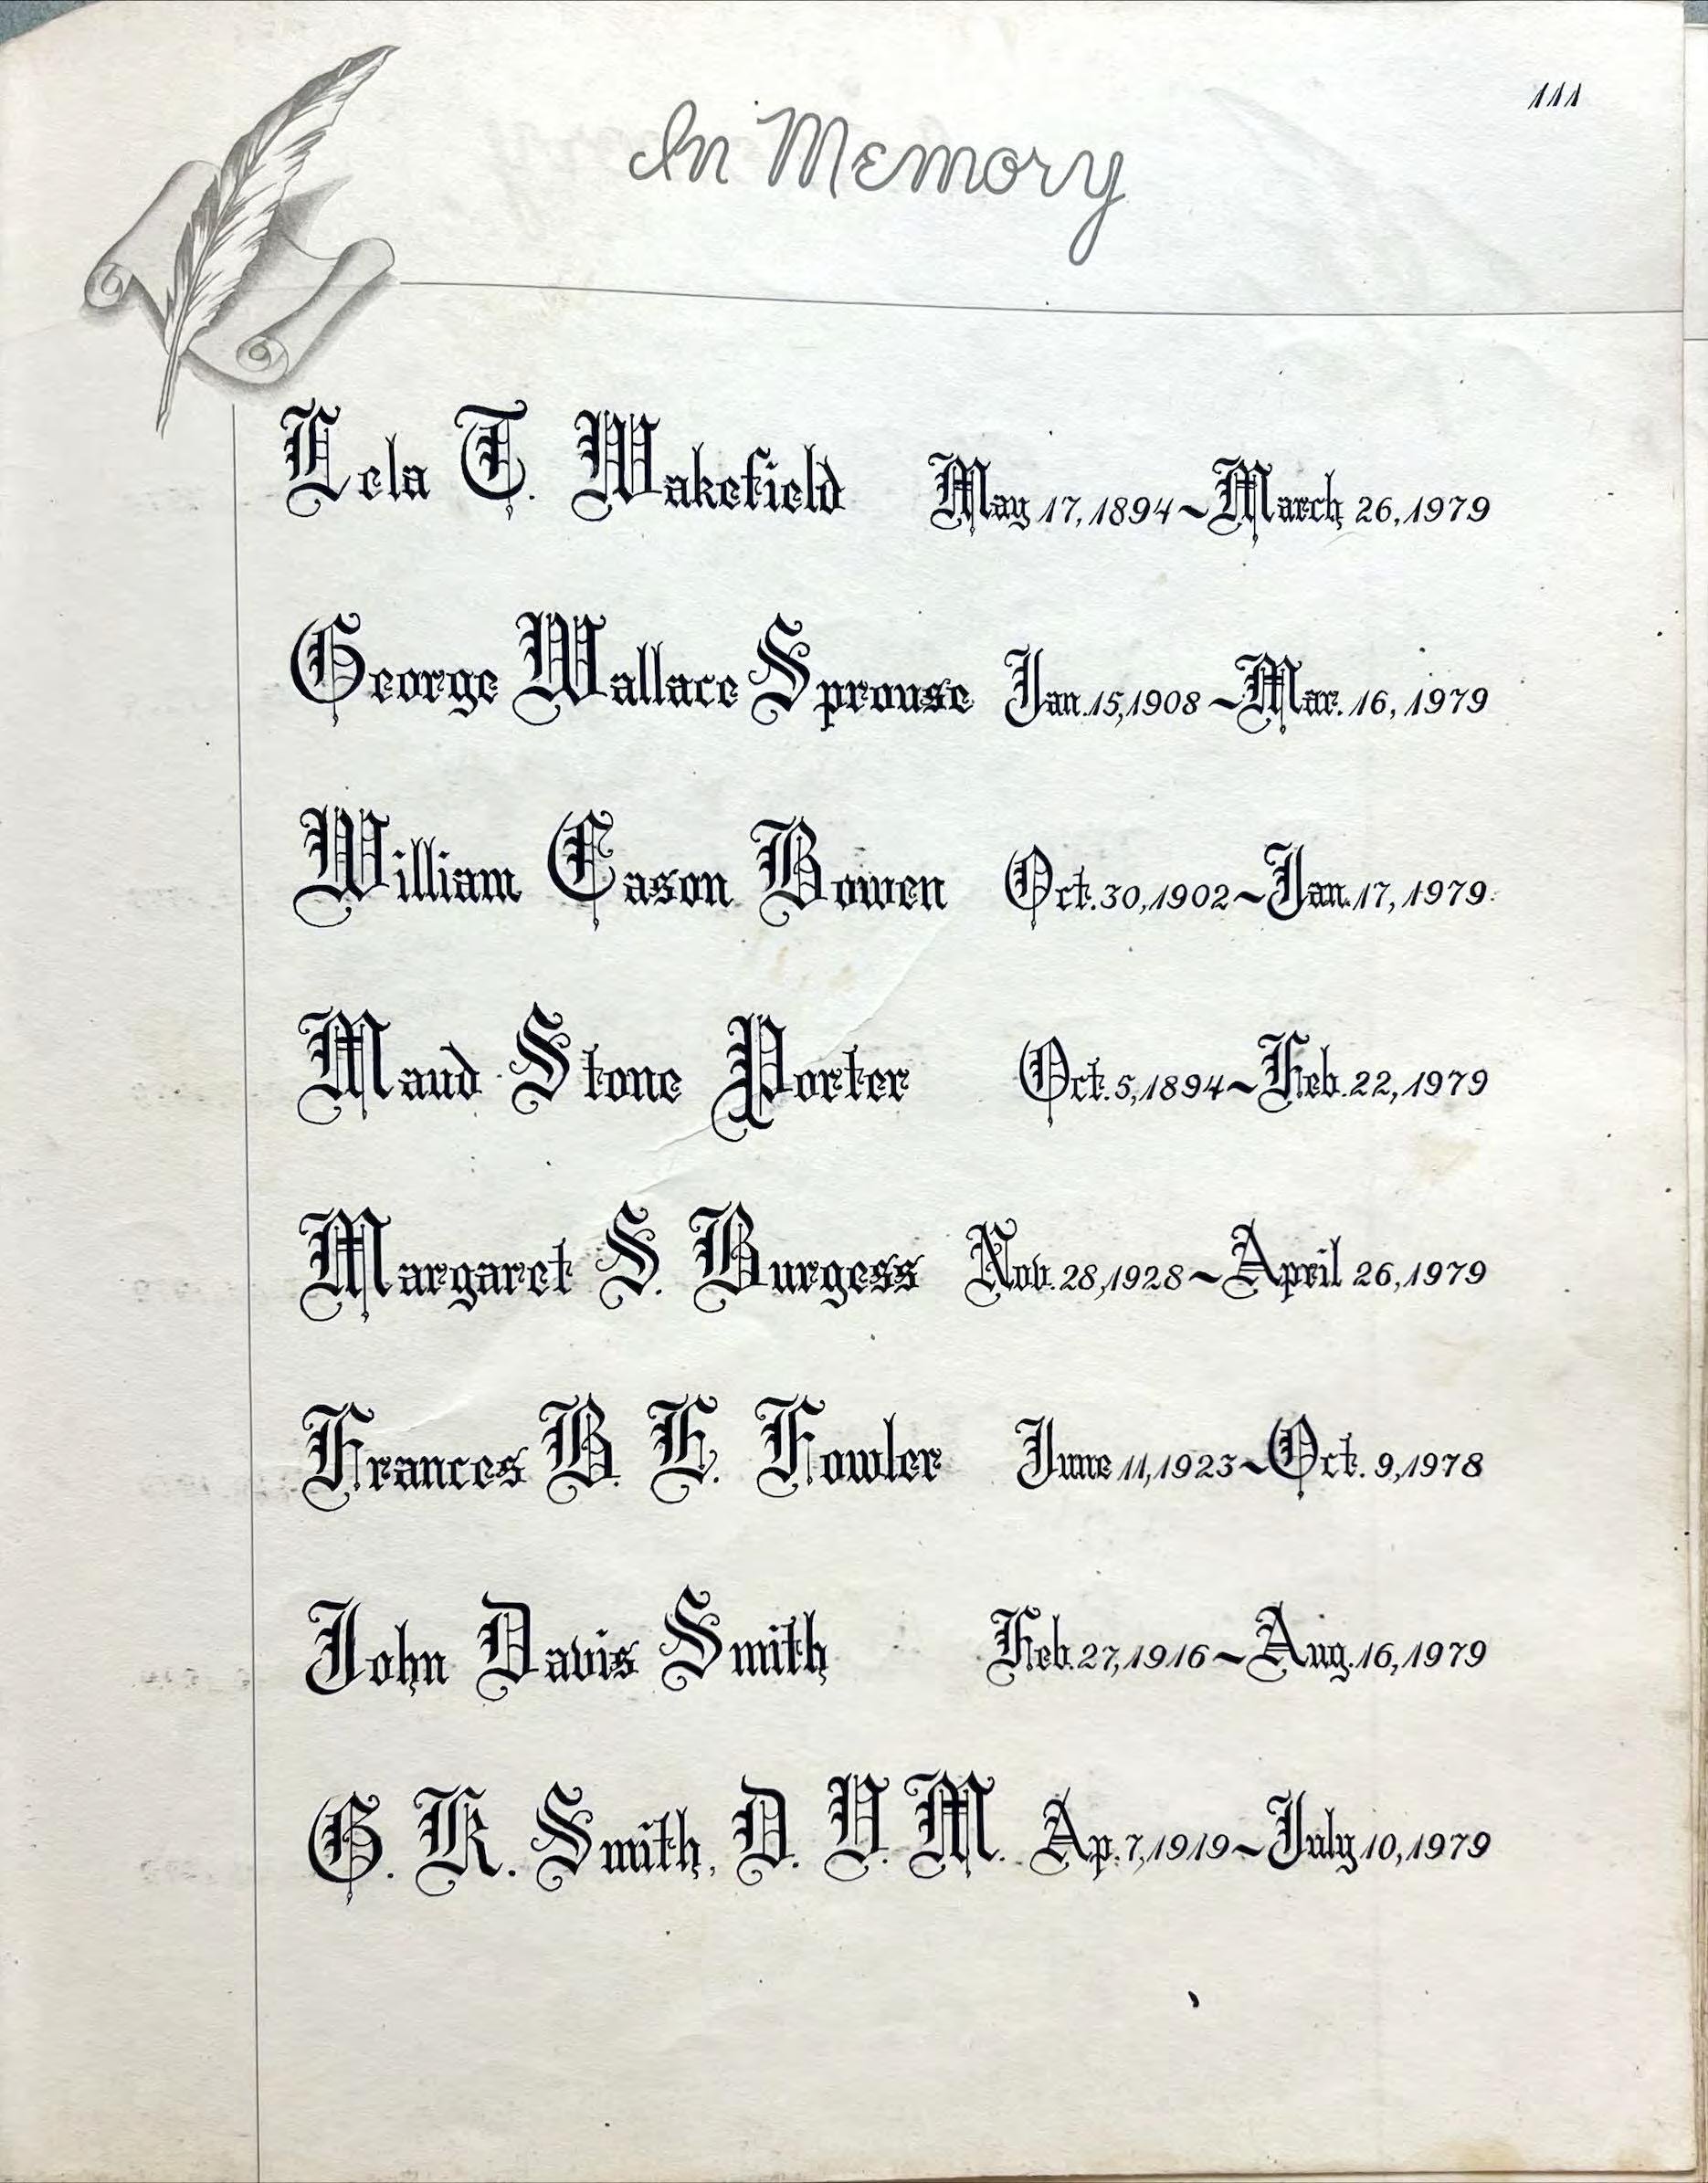 111
In Memory
Lela T. Wakefield May 17, 1894 ~ March 26, 1979
George Wallace Sprouse Jan. 15, 1908 ~ Mar. 16, 1979
William Eason Bowen Oct. 30, 1902 ~ Jan. 17, 1979
Maud Stone Porter Oct. 5, 1894 ~ Feb. 22, 1979
Margaret S. Burgess Nov. 28, 1928 ~ April 26, 1979
Frances B. E. Fowler June 11, 1923 ~ Oct. 9, 1978
John Davis Smith Feb. 27, 1916 ~ Aug. 16, 1979
G. K. Smith, D. V. M. Ap. 7, 1919 ~ July 10, 1979